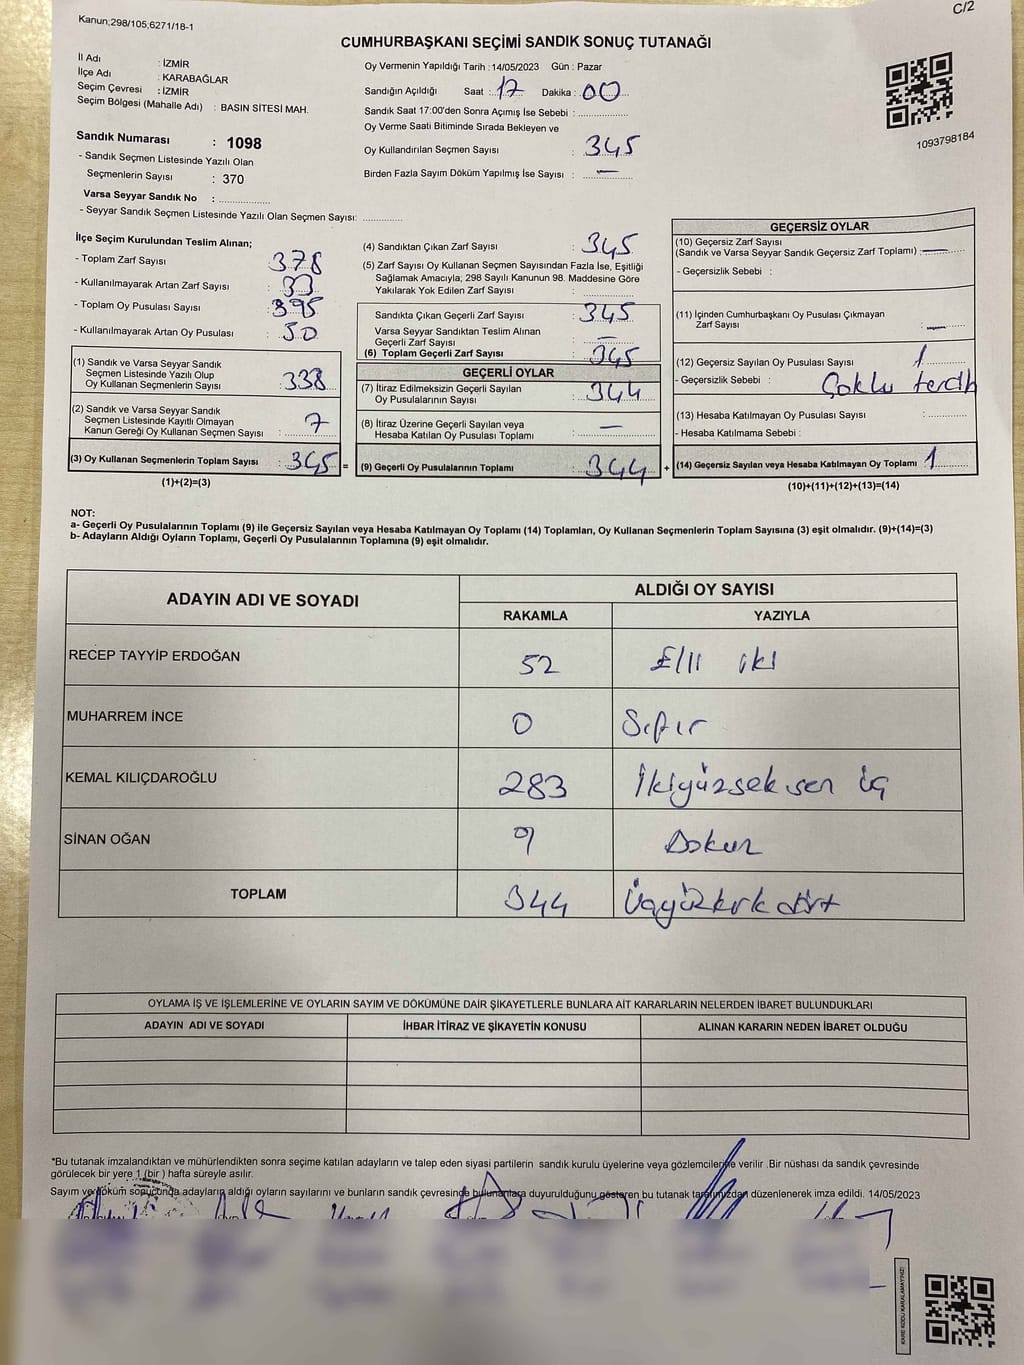 C/2
Kanun;298/105,6271/18-1
CUMHURBAŞKANI SEÇİMİ SANDIK SONUÇ TUTANAĞI
İl Adı : İZMİR
İlçe Adı : KARABAĞLAR
Seçim Çevresi : İZMİR
Seçim Bölgesi (Mahalle Adı) : BASIN SİTESİ MAH.
Sandık Numarası : 1098
- Sandık Seçmen Listesinde Yazılı Olan
Seçmenlerin Sayısı : 370
Varsa Seyyar Sandık No : ................
- Seyyar Sandık Seçmen Listesinde Yazılı Olan Seçmen Sayısı: ............
Oy Vermenin Yapıldığı Tarih : 14/05/2023 Gün : Pazar
Sandığın Açıldığı Saat : 17 Dakika : 00
Sandık Saat 17:00'den Sonra Açımış İse Sebebi : ................
Oy Verme Saati Bitiminde Sırada Bekleyen ve
Oy Kullandırılan Seçmen Sayısı : 345
Birden Fazla Sayım Döküm Yapılmış İse Sayısı : —
1093798184
İlçe Seçim Kurulundan Teslim Alınan;
- Toplam Zarf Sayısı : 378
- Kullanılmayarak Artan Zarf Sayısı : 33
- Toplam Oy Pusulası Sayısı : 395
- Kullanılmayarak Artan Oy Pusulası : 50
(1) Sandık ve Varsa Seyyar Sandık
Seçmen Listesinde Yazılı Olup
Oy Kullanan Seçmenlerin Sayısı : 338
(2) Sandık ve Varsa Seyyar Sandık
Seçmen Listesinde Kayıtlı Olmayan
Kanun Gereği Oy Kullanan Seçmen Sayısı : 7
(3) Oy Kullanan Seçmenlerin Toplam Sayısı : 345 =
(1)+(2)=(3)
(4) Sandıktan Çıkan Zarf Sayısı : 345
(5) Zarf Sayısı Oy Kullanan Seçmen Sayısından Fazla İse, Eşitliği
Sağlamak Amacıyla; 298 Sayılı Kanunun 98. Maddesine Göre
Yakılarak Yok Edilen Zarf Sayısı : ................
Sandıkta Çıkan Geçerli Zarf Sayısı : 345
Varsa Seyyar Sandıktan Teslim Alınan
Geçerli Zarf Sayısı : —
(6) Toplam Geçerli Zarf Sayısı : 345
GEÇERLİ OYLAR
(7) İtiraz Edilmeksizin Geçerli Sayılan
Oy Pusulalarının Sayısı : 344
(8) İtiraz Üzerine Geçerli Sayılan veya
Hesaba Katılan Oy Pusulası Toplamı : —
(9) Geçerli Oy Pusulalarının Toplamı : 344 +
GEÇERSİZ OYLAR
(10) Geçersiz Zarf Sayısı
(Sandık ve Varsa Seyyar Sandık Geçersiz Zarf Toplamı) : —
- Geçersizlik Sebebi :
(11) İçinden Cumhurbaşkanı Oy Pusulası Çıkmayan
Zarf Sayısı : —
(12) Geçersiz Sayılan Oy Pusulası Sayısı : 1
- Geçersizlik Sebebi : Çoklu tercih
(13) Hesaba Katılmayan Oy Pusulası Sayısı : ............
- Hesaba Katılmama Sebebi :
(14) Geçersiz Sayılan veya Hesaba Katılmayan Oy Toplamı : 1
(10)+(11)+(12)+(13)=(14)
NOT:
a- Geçerli Oy Pusulalarının Toplamı (9) ile Geçersiz Sayılan veya Hesaba Katılmayan Oy Toplamı (14) Toplamları, Oy Kullanan Seçmenlerin Toplam Sayısına (3) eşit olmalıdır. (9)+(14)=(3)
b- Adayların Aldığı Oyların Toplamı, Geçerli Oy Pusulalarının Toplamına (9) eşit olmalıdır.
ADAYIN ADI VE SOYADI ALDIĞI OY SAYISI
RAKAMLA YAZIYLA
RECEP TAYYİP ERDOĞAN 52 Elli iki
MUHARREM İNCE 0 Sıfır
KEMAL KILIÇDAROĞLU 283 İkiyüzseksen üç
SİNAN OĞAN 9 Dokuz
TOPLAM 344 Üçyüzkırk dört
OYLAMA İŞ VE İŞLEMLERİNE VE OYLARIN SAYIM VE DÖKÜMÜNE DAİR ŞİKAYETLERLE BUNLARA AİT KARARLARIN NELERDEN İBARET BULUNDUKLARI
ADAYIN ADI VE SOYADI İHBAR İTİRAZ VE ŞİKAYETİN KONUSU ALINAN KARARIN NEDEN İBARET OLDUĞU
*Bu tutanak imzalandıktan ve mühürlendikten sonra seçime katılan adayların ve talep eden siyasi partilerin sandık kurulu üyelerine veya gözlemcilerine verilir .Bir nüshası da sandık çevresinde
görülecek bir yere 1 (bir ) hafta süreyle asılır.
Sayım ve döküm sonucunda adayların aldığı oyların sayılarını ve bunların sandık çevresinde bulunanlara duyurulduğunu gösteren bu tutanak tarafımızdan düzenlenerek imza edildi. 14/05/2023
KARE KODU KARALAMAYINIZ!